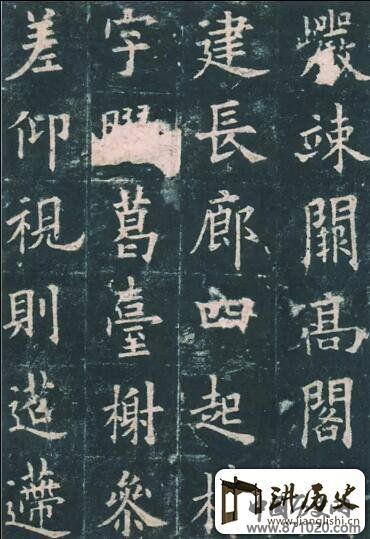 巖竦闕高閣
建長廊四起
宇葛臺榭參
差仰視則迢遰
讲历史
www.jianglishi.cn
www.871020.com